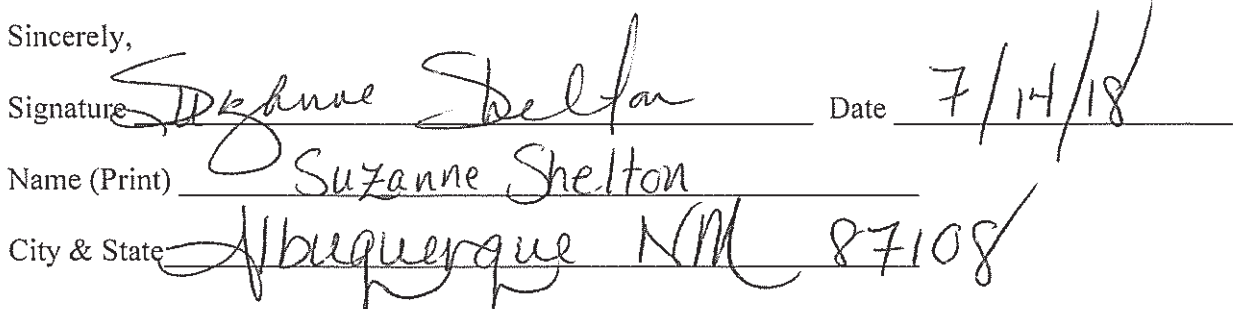 Sincerely,
Signature Suzanne Shelton Date 7/14/18
Name (Print) Suzanne Shelton
City & State Albuquerque NM 87108